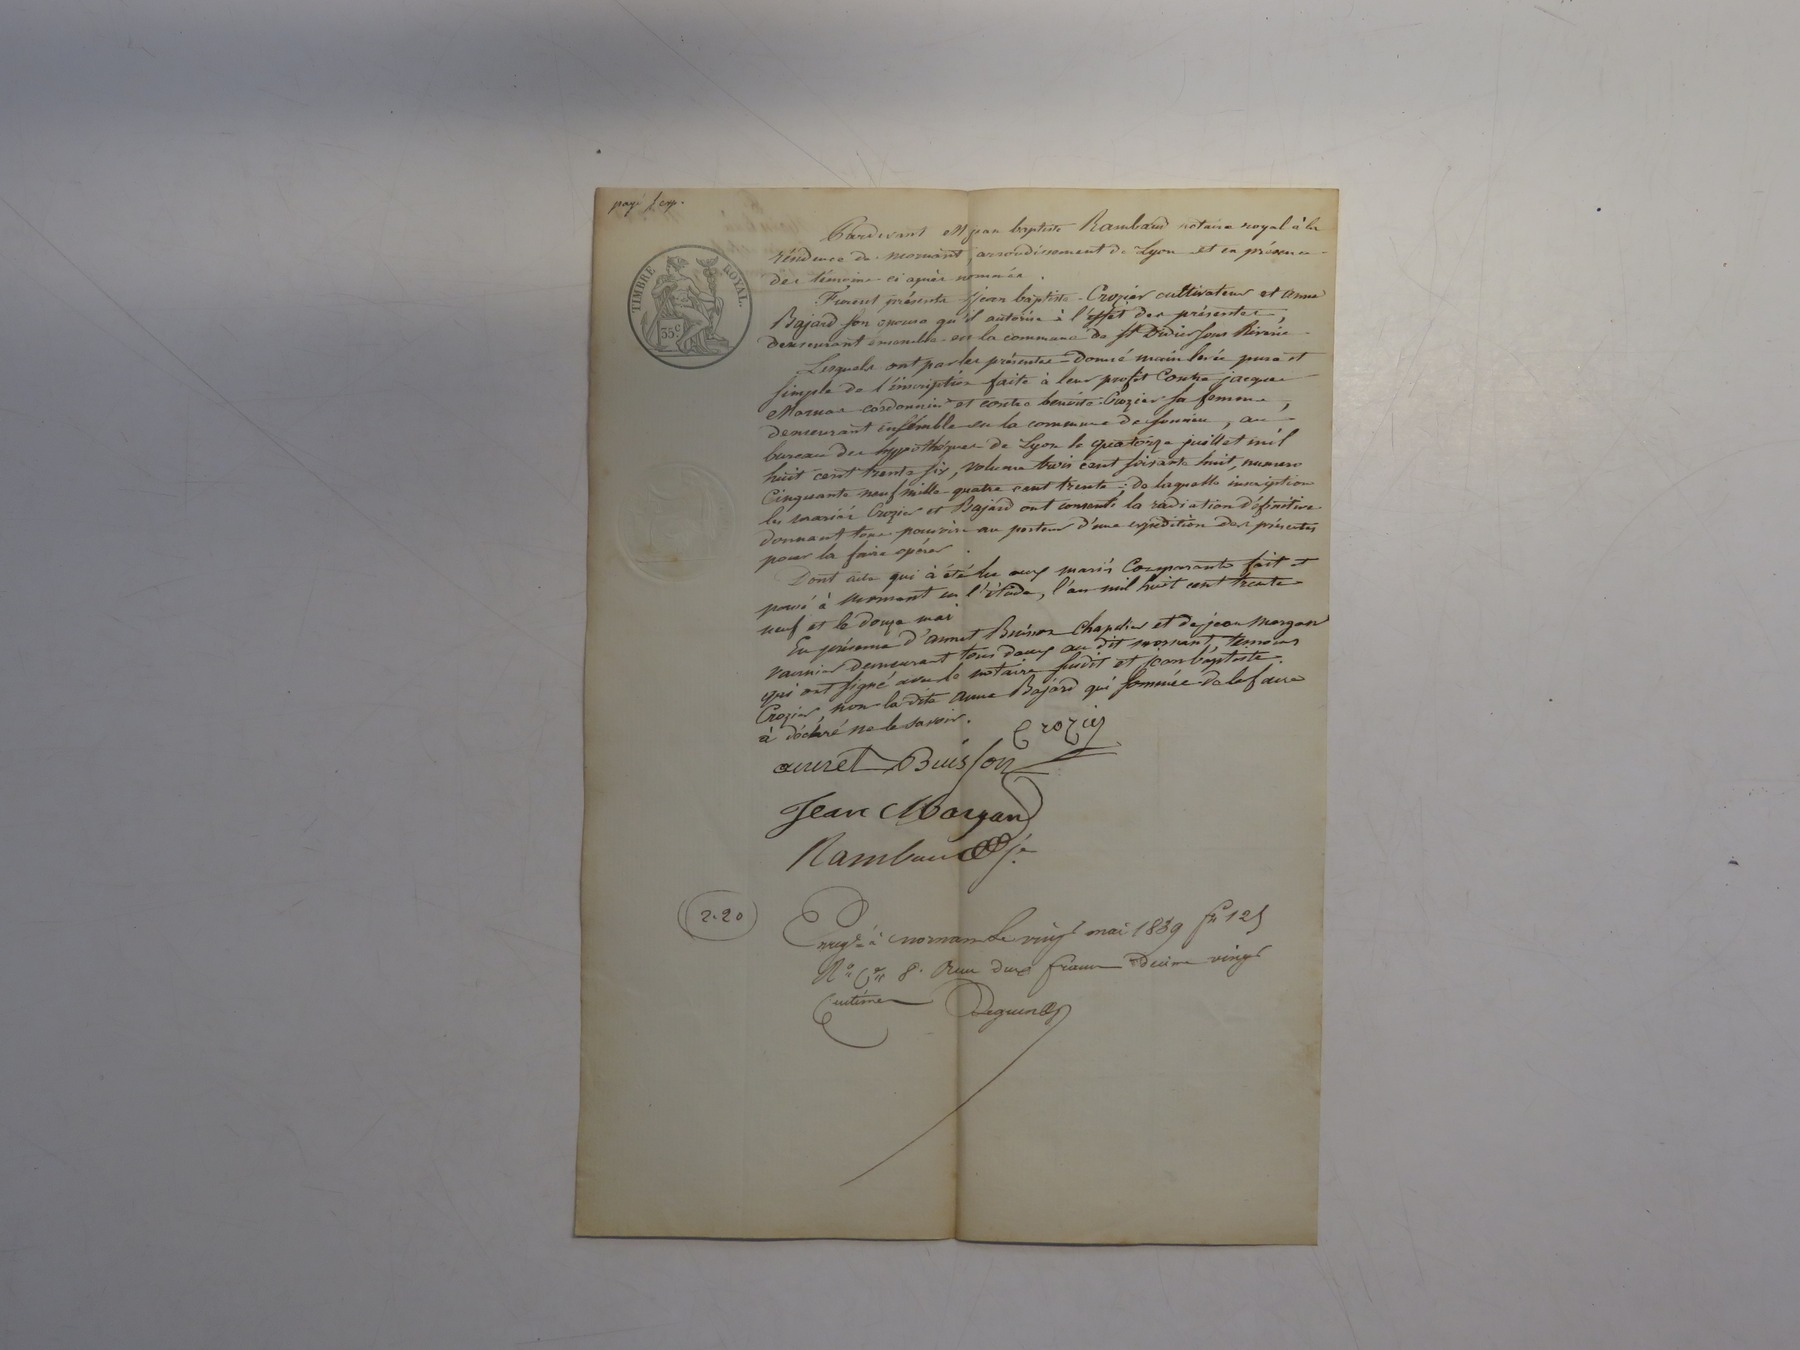 payé 1 exp.
TIMBRE ROYAL.
35c
Pardevant Me jean baptiste Rambaud notaire royal à la
résidence de mornant, arrondissement de Lyon et en présence
des témoins ci après nommés.
Furent présents jean baptiste Crozier cultivateur et anne
Bajard son epouse qu'il autorise à l'effet des présentes,
demeurant ensemble en la commune de St Didier sous Riverie
Lesquels ont par les présentes donné main levée pure et
simple de l'inscription faite à leur profit contre jacques
cordonnier et contre benoite Crozier sa femme,
demeurant ensemble en la commune de , au
bureau des hypothéques de Lyon le quatorze juillet mil
huit cent trente six, volume trois cent soixante huit, numero
Cinquante neuf mille quatre cent trente; de laquelle inscription
les mariés Crozier et Bajard ont consenti la radiation définitive
donnant tous pouvoirs au porteur d'une expédition des présentes
pour la faire opérer.
Dont acte qui à été lu aux mariés Comparants fait et
passé à mornant en l'étude, l'an mil huit cent trente
neuf et le douze mai
En présence d'annet Buisson chapelier et de jean morgan
vannier demeurant tous deux au dit mornant, temoins
qui ont signé avec le notaire susdit et jean baptiste
Crozier, non la dite anne Bajard qui sommée de le faire
à déclaré ne le savoir.
Crozier
annet Buisson
Jean Morgand
Rambaud
2.20
Enregté à mornant le vingt mai 1839 fo 125
Ro Cer 8. Reçu deux francs décime vingt
Centimes